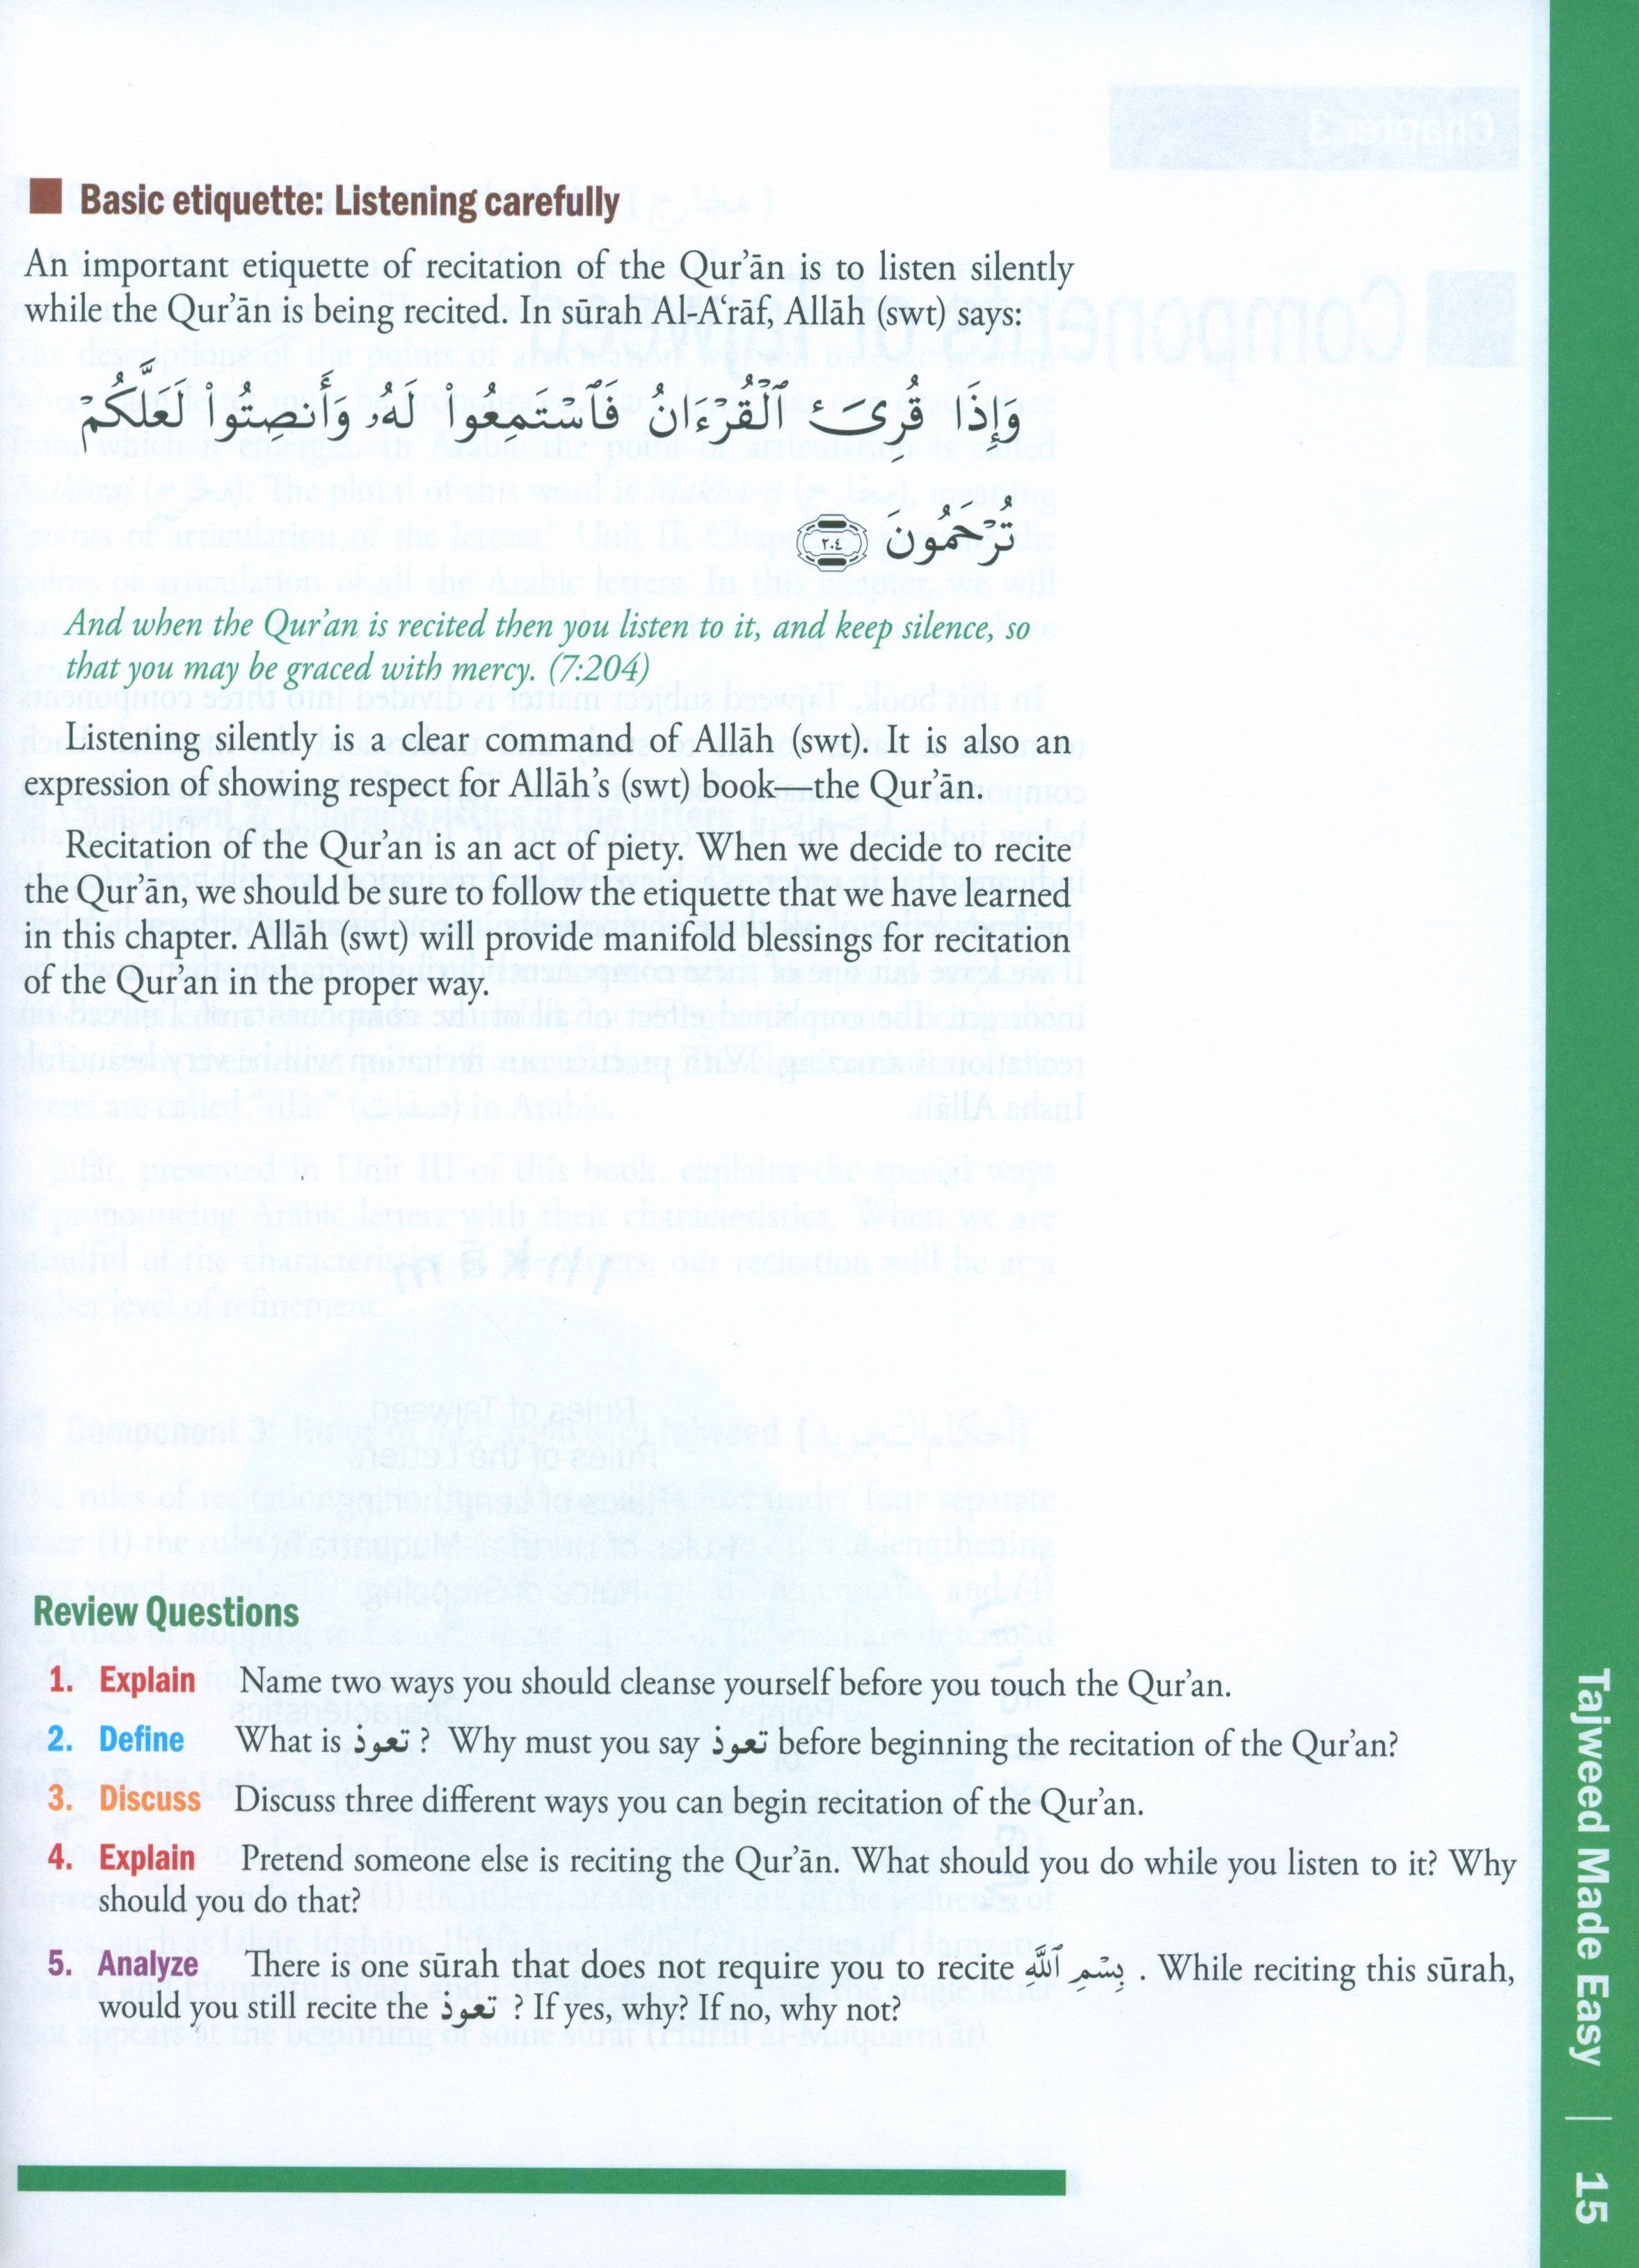 ■ Basic etiquette: Listening carefully
An important etiquette of recitation of the Qur’ān is to listen silently
while the Qur’ān is being recited. In sūrah Al-Arāf, Allāh (swt) says:
وَإِذَا قُرِىءَ ٱلْقُرْءَانُ فَٱسْتَمِعُوا۟ لَهُۥ وَأَنصِتُوا۟ لَعَلَّكُمْ
تُرْحَمُونَ ٢٠٤
And when the Qur’an is recited then you listen to it, and keep silence, so
that you may be graced with mercy. (7:204)
Listening silently is a clear command of Allāh (swt). It is also an
expression of showing respect for Allāh’s (swt) book—the Qur’ān.
Recitation of the Qur’ān is an act of piety. When we decide to recite
the Qur’ān, we should be sure to follow the etiquette that we have learned
in this chapter. Allāh (swt) will provide manifold blessings for recitation
of the Qur’ān in the proper way.
Review Questions
1. Explain Name two ways you should cleanse yourself before you touch the Qur’an.
2. Define What is تعوذ ? Why must you say تعوذ before beginning the recitation of the Qur’an?
3. Discuss Discuss three different ways you can begin recitation of the Qur’an.
4. Explain Pretend someone else is reciting the Qur’ān. What should you do while you listen to it? Why
should you do that?
5. Analyze There is one sūrah that does not require you to recite بِسْمِ ٱللَّهِ . While reciting this sūrah,
would you still recite the تعوذ ? If yes, why? If no, why not?
Tajweed Made Easy | 15